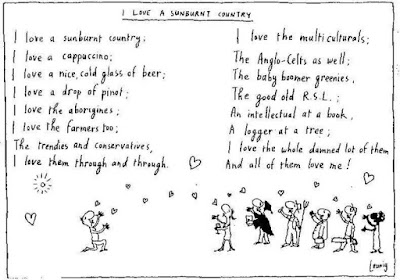 I LOVE A SUNBURNT COUNTRY
I love a sunburnt country;
I love a cappuccino;
I love a nice, cold glass of beer;
I love a drop of pinot;
I love the aborigines;
I love the farmers too;
The trendies and conservatives,
I love them through and through.
I love the multiculturals;
The Anglo-Celts as well;
The baby boomer greenies,
The good old R.S.L.;
An intellectual at a book,
A logger at a tree;
I love the whole damned lot of them
And all of them love me!
Leunig